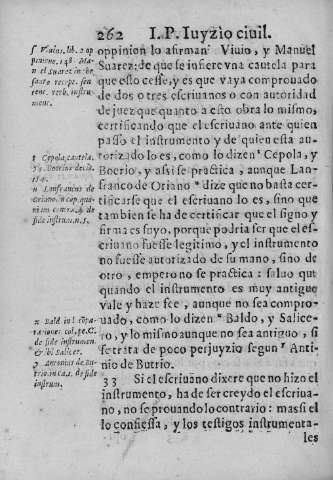 262 I. P. Iuyzio ciuil.
oppinion lo afirman ſ Viuio, y Manuel
Suarez: de que se infiere vna cautela para
que esto cesse, y es que vaya comprouado
de dos o tres escriuanos o con autoridad
de juez que quanto a esto obra lo mismo,
certificando que el escriuano ante quien
passo el instrumento y de quien esta au-
torizado lo es, como lo dizen t Cepola, y
Boerio, y assi se practica, aunque Lan-
franco de Oriano u dize que no basta cer-
tificarse que el escriuano lo es, sino que
tambien se ha de certificar que el signo y
firma es suyo, porque podria ser que el es-
criuano fuesse legitimo, y el instrumento
no fuesse autorizado de su mano, sino de
otro, empero no se practica: saluo quē
quando el instrumento es muy antiguo
vale y haze fee, aunque no sea compro-
uado, como lo dizen x Baldo, y Salice-
ro, y lo mismo aunque no sea antiguo, si
se trata de poco perjuyzio segun y Anti-
nio de Butrio.
33 Si el escriuano dixere que no hizo el
instrumento, ha de ser creydo el escriua-
no, no se prouando lo contrario: mas si el
lo confiessa, y los testigos instrumenta-
les
ſ Viuius, lib. 2 op
pinione. 148. Ma-
n el Suarez in the
sauro recept. sen
tent. verb. instru-
ment.
t Cepola, cautela.
Boerius decis.
u Lanfrancus de
Oriano, in cap. quo-
niam contra, de
fide instrum. n. 5.
x Bald in l. cōpa-
rationes col. pe. C.
de fide instrumen.
& ibi Salicet.
y Antonius de Bu-
trio in ca. 1. de fide
instrum.